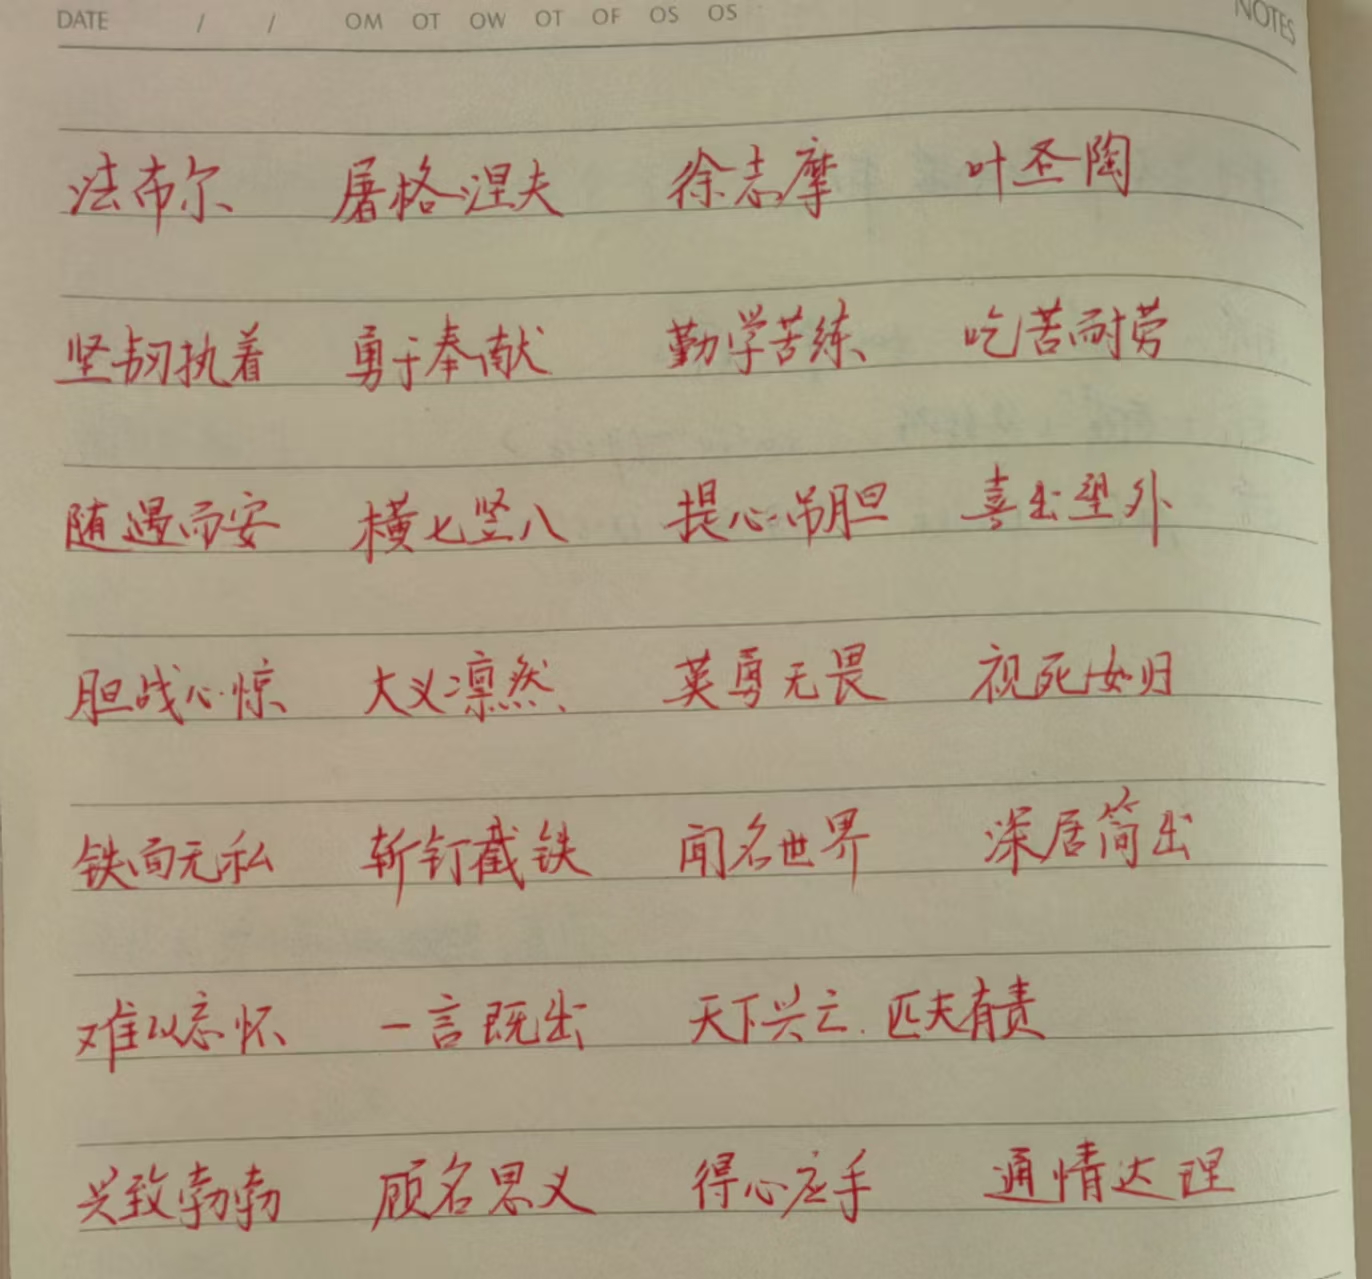 DATE / / OM OT OW OT OF OS OS NOTES
法布尔 屠格涅夫 徐志摩 叶圣陶
坚韧执着 勇于奉献 勤学苦练 吃苦耐劳
随遇而安 横七竖八 提心吊胆 喜出望外
胆战心惊 大义凛然 英勇无畏 视死如归
铁面无私 斩钉截铁 闻名世界 深居简出
难以忘怀 一言既出 天下兴亡.匹夫有责
兴致勃勃 顾名思义 得心应手 通情达理